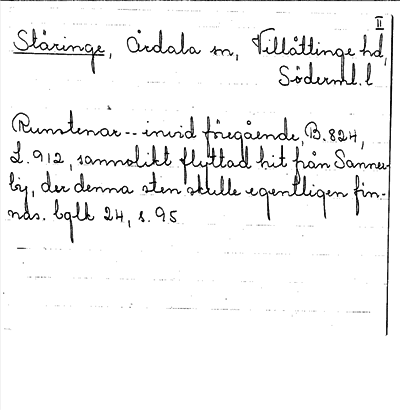 II
Ståringe, Årdala sn, Villåttinge hd,
Söderml. l
Runstenar -- invid föregående, B. 824,
L. 912, sannolikt flyttad hit från Sanner-
by, der denna sten skulle egentligen fin-
nas. bglk 24, s. 95